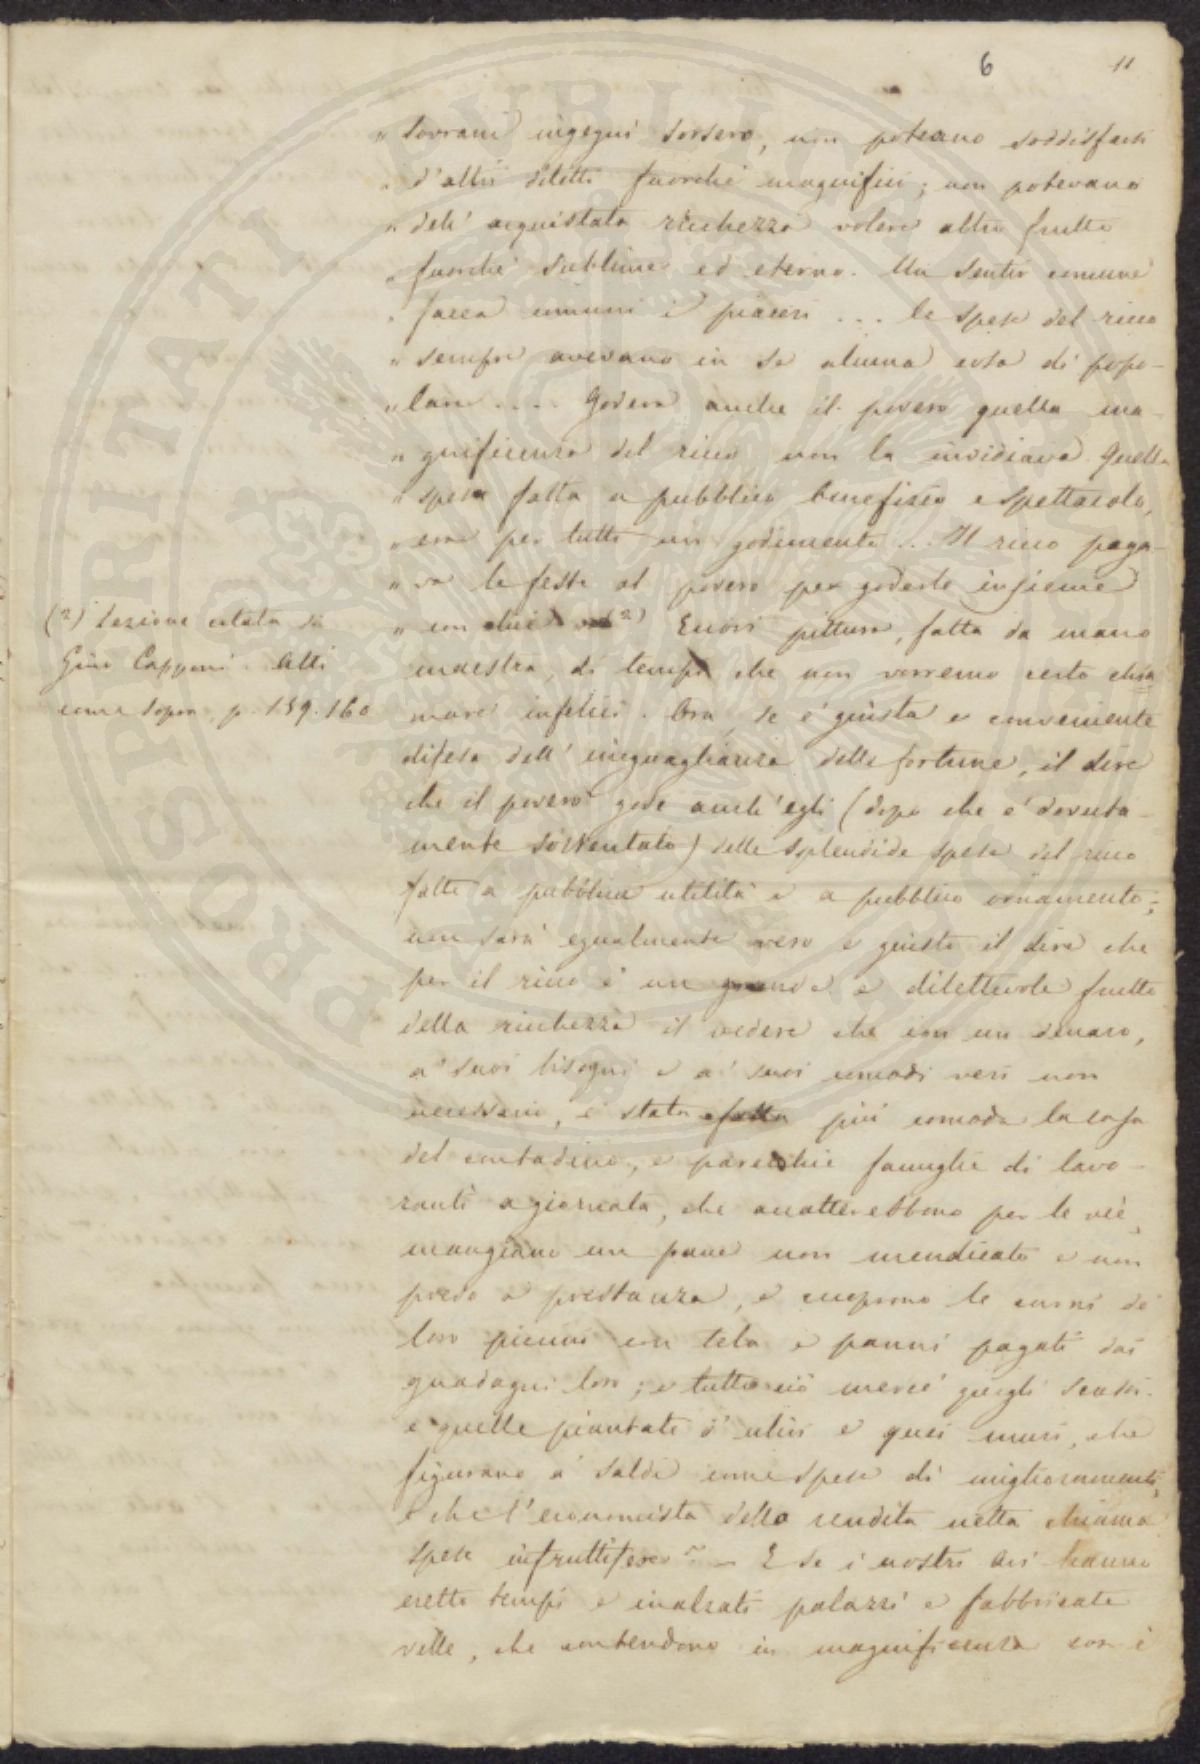 6 11
" sovrani ingegni sorsero, non poteano soddisfarsi
" d'altri diletti fuorchè magnifici; non potevano
" dell' acquistata ricchezza volere altro frutto
" fuorchè sublime ed eterno. Un sentir comune
" facea comuni i piaceri ... le spese del ricco
" sempre avevano in se alcuna cosa di popo-
" lare .... Godeva anche il povero quella ma-
" gnificenza del ricco non la invidiava. Quella
" spesa fatta a pubblico benefizio e spettacolo,
" era per tutti un godimento ... Il ricco paga-
" va le feste al povero per goderle insieme
" con lui (2) Eccovi pittura, fatta da mano
maestra, di tempi che non vorremo certo chia
mare infelici. Ora, se è giusta e conveniente
difesa dell' ineguaglianza delle fortune, il dire
che il povero gode anch'egli (dopo che è dovuta-
mente sostentato) delle splendide spese del ricco
fatte a pubblica utilità e a pubblico ornamento;
non sarà egualmente vero e giusto il dire che
per il ricco è un grande e dilettevole frutto
della ricchezza il vedere che con un denaro,
a' suoi bisogni e a' suoi comodi veri non
necessario, è stata fatta più comoda la casa
del contadino, e parecchie famiglie di lavo-
ranti a giornata, che accatterebbono per le vie,
mangiano un pane non mendicato e non
preso a prestanza, e cuoprono le carni de'
loro piccini con tela e panni pagati dai
guadagni loro; e tutto ciò mercè quegli scassi
e quelle piantate d' ulivi e quei muri, che
figurano a' saldi come spese di miglioramenti,
e che l'economista della rendita netta chiama
spese infruttifere? – E se i nostri avi hanno
eretto tempi e inalzati palazzi e fabbricate
ville, che contendono in magnificenza con i
(2) Lezione citata di
Gino Capponi. Atti
come sopra, p. 159. 160
PROSPERITATI PUBLICAE